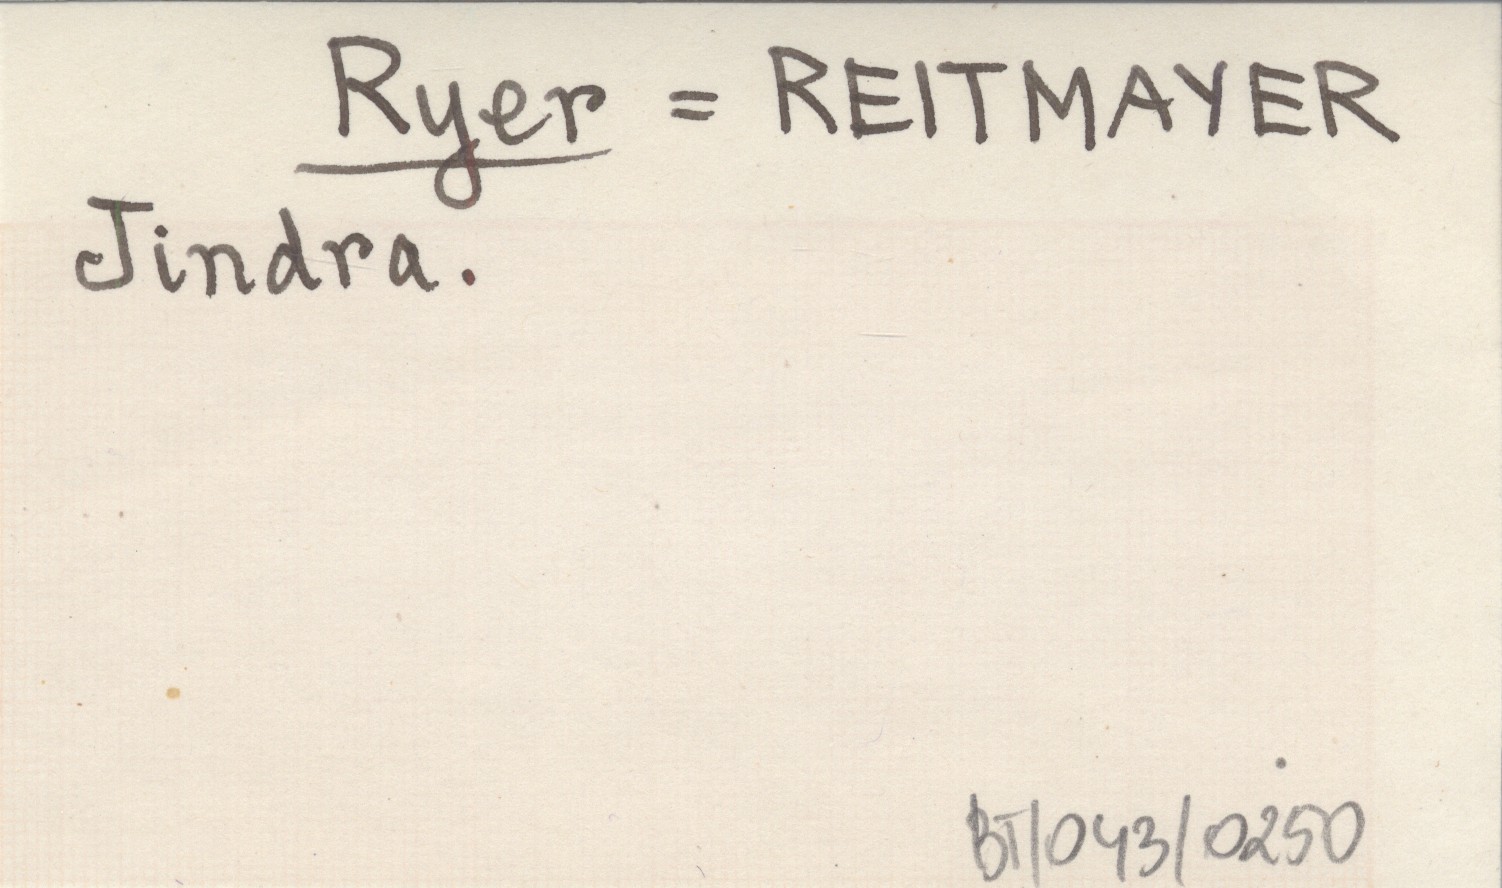 Ryer = REITMAYER
Jindra.
BT/043/0250